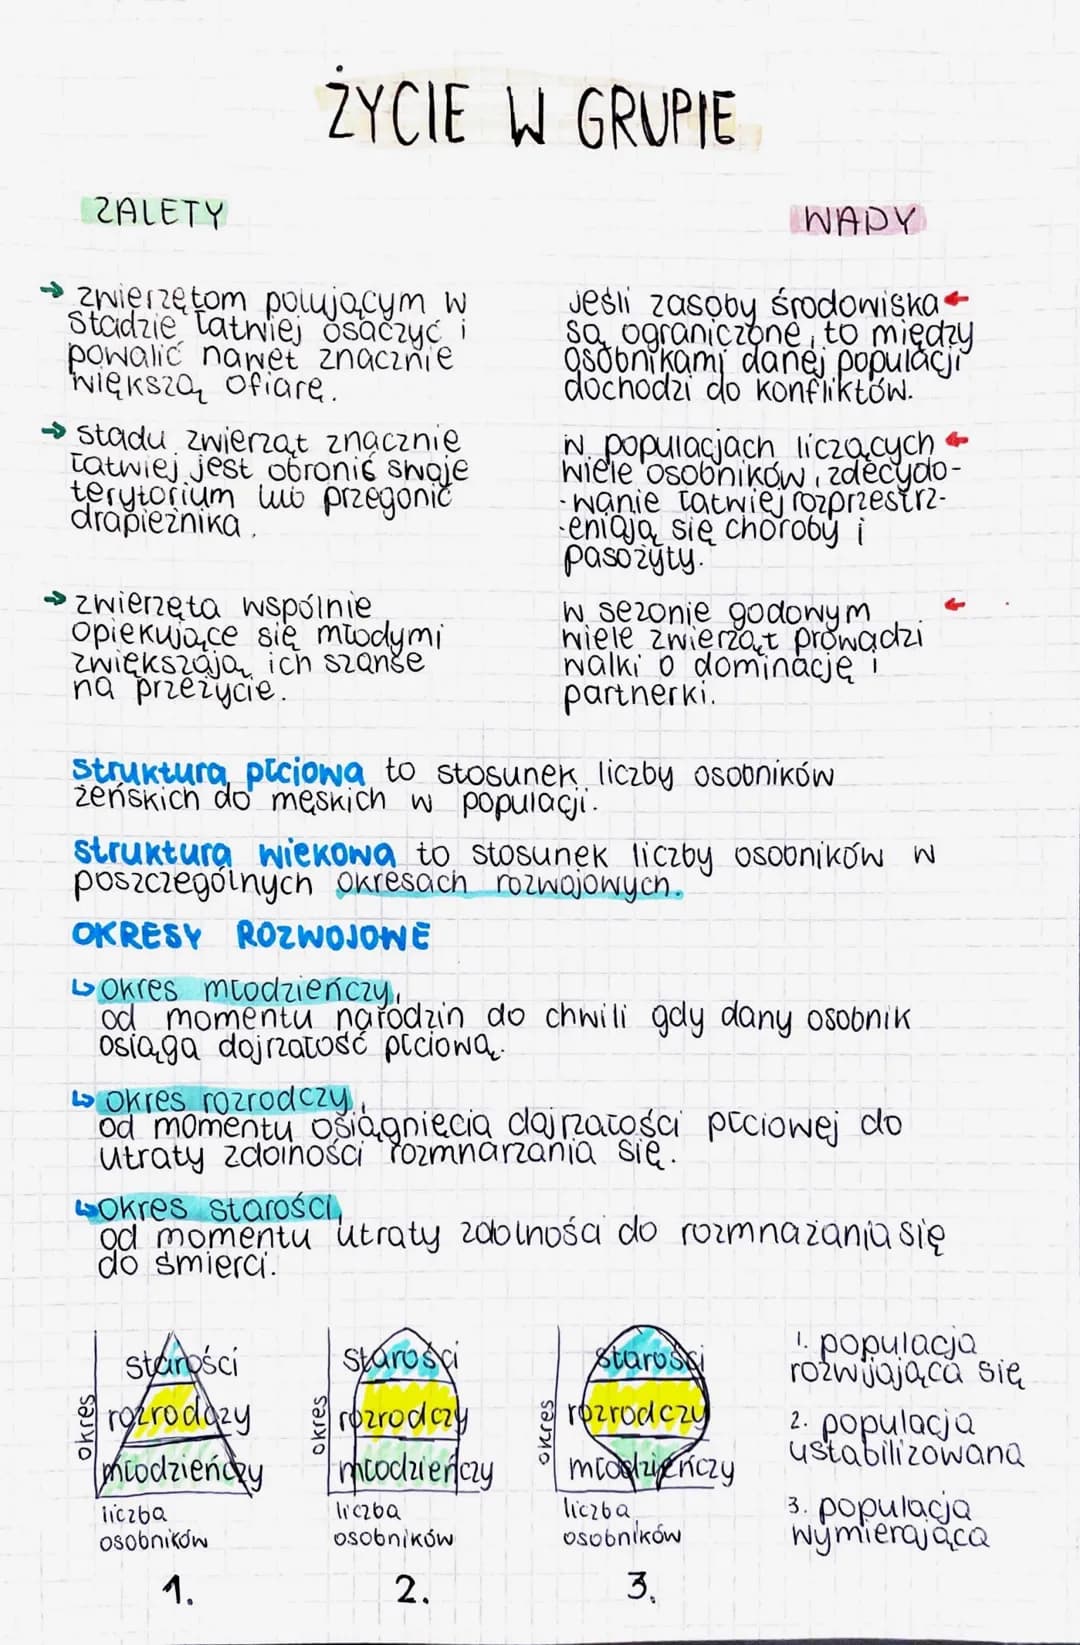 ŻYCIE W GRUPIE
ZALETY
→ zwierzętom polującym w
stadzie łatwiej osaczyć i
powalić nawet znacznie
większą ofiarę.
→ stadu zwierząt znacznie
łatwiej jest obronić swoje
terytorium lub przegonić
drapieżnika.
→ zwierzęta wspólnie
opiekujące się młodymi
zwiększają ich szanse
na przeżycie.
WADY
Jeśli zasoby środowiska ←
są ograniczone, to między
osobnikami danej populacji
dochodzi do konfliktów.
W populacjach liczących ←
wiele osobników, zdecydo-
-wanie łatwiej rozprzestrz-
-eniają się choroby i
pasożyty.
W sezonie godowym ←
wiele zwierząt prowadzi
walki o dominację i
partnerki.
Struktura płciowa to stosunek liczby osobników
żeńskich do męskich w populacji.
Struktura wiekowa to stosunek liczby osobników w
poszczególnych okresach rozwojowych.
OKRESY ROZWOJOWE
↳ okres młodzieńczy,
od momentu narodzin do chwili gdy dany osobnik
osiąga dojrzałość płciową.
↳ okres rozrodczy,
od momentu osiągnięcia dojrzałości płciowej do
utraty zdolności rozmnarzania się.
↳ okres starości,
od momentu utraty zdolności do rozmnażania się
do śmierci.
okres
starości
rozrodczy
młodzieńczy
liczba
osobników
1.
okres
starości
rozrodczy
młodzieńczy
liczba
osobników
2.
okres
starości
rozrodczy
młodzieńczy
liczba
osobników
3.
1. populacja
rozwijająca się
2. populacja
ustabilizowana
3. populacja
wymierająca